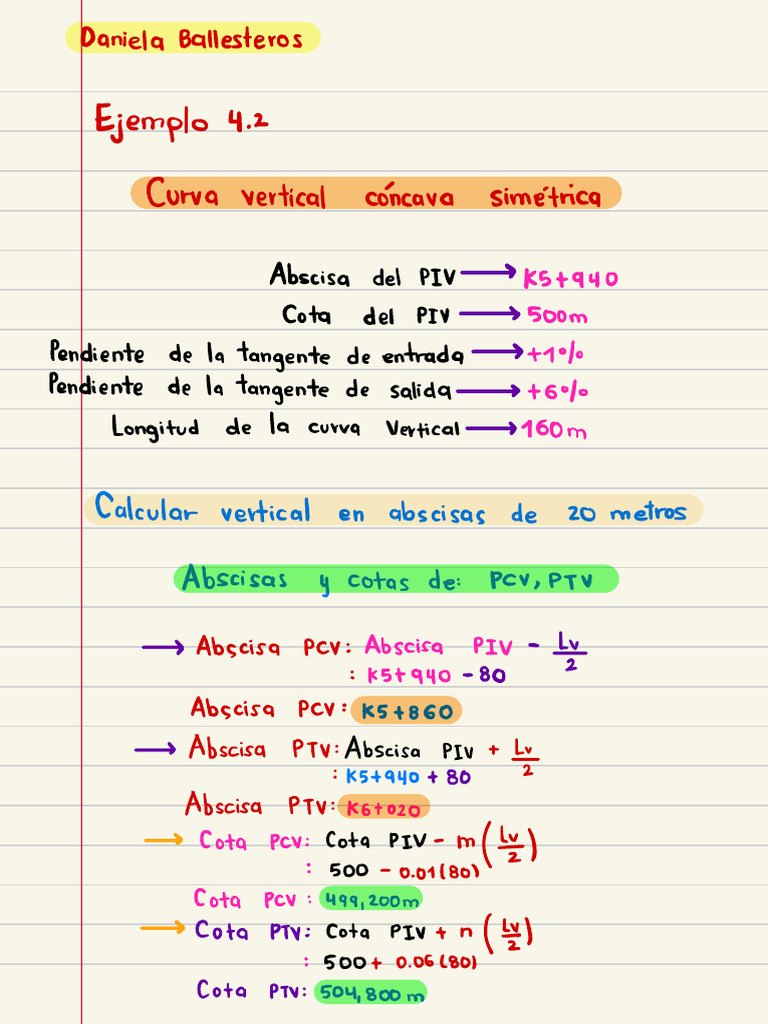 Daniela Ballesteros
Ejemplo 4.2
Curva vertical cóncava simétrica
Abscisa del PIV → K5+940
Cota del PIV → 500m
Pendiente de la tangente de entrada → +1%
Pendiente de la tangente de salida → +6%
Longitud de la curva Vertical → 160m
Calcular vertical en abscisas de 20 metros
Abscisas y cotas de: PCV, PTV
→ Abscisa PCV: Abscisa PIV - Lv/2
: K5+940 - 80
Abscisa PCV: K5+860
→ Abscisa PTV: Abscisa PIV + Lv/2
: K5+940 + 80
Abscisa PTV: K6+020
→ Cota PCV: Cota PIV - m (Lv/2)
: 500 - 0.01(80)
Cota PCV: 499,200m
→ Cota PTV: Cota PIV + n (Lv/2)
: 500 + 0.06(80)
Cota PTV: 504,800m